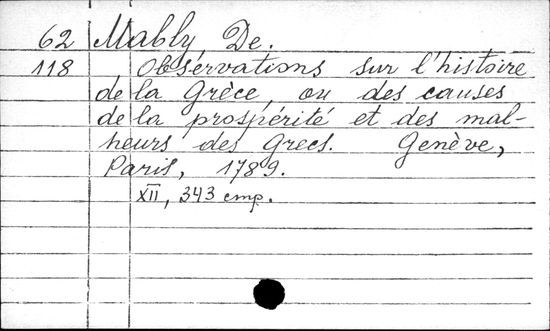 62 Mably De.
118 Observations sur l'histoire
de la Grèce, ou des causes
de la prospérité et des mal-
heurs des Grecs. Genève,
Paris, 1789.
XII, 343 стр.